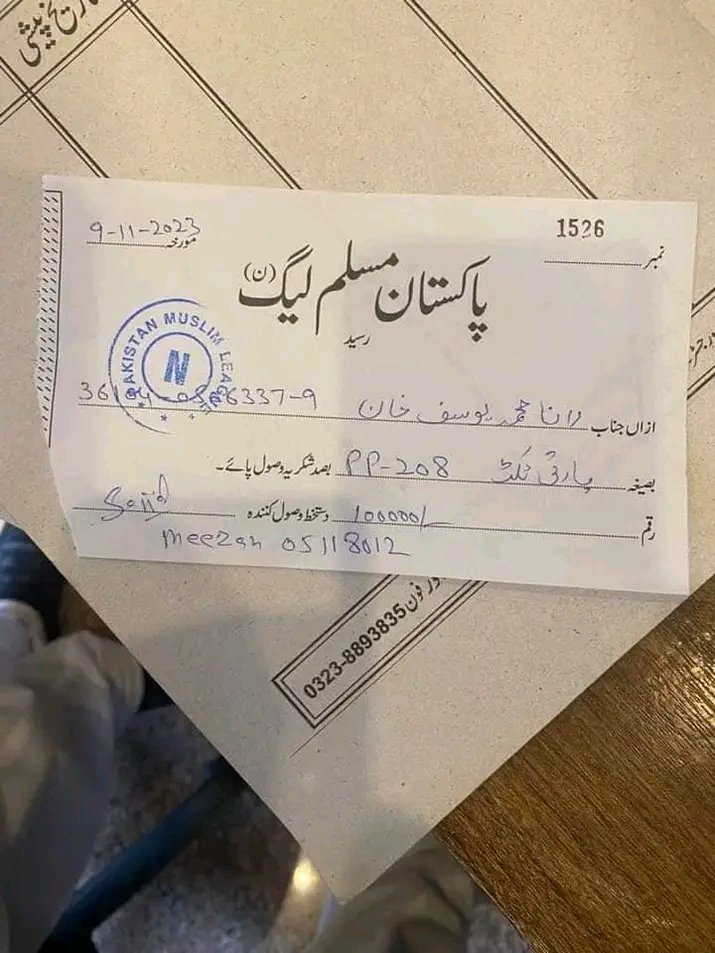 تاریخ پیشی
9-11-2023 مورخہ
1526
نمبر
پاکستان مسلم لیگ (ن)
رسید
PAKISTAN MUSLIM LEAGUE
N
ازاں جناب رانا محمد یوسف خان
بصیغہ پارٹی ٹکٹ PP-208 بصد شکریہ وصول پائے۔
رقم 100000/- دستخط وصول کنندہ Sajid
meezan 05118012
فون 0323-8893835